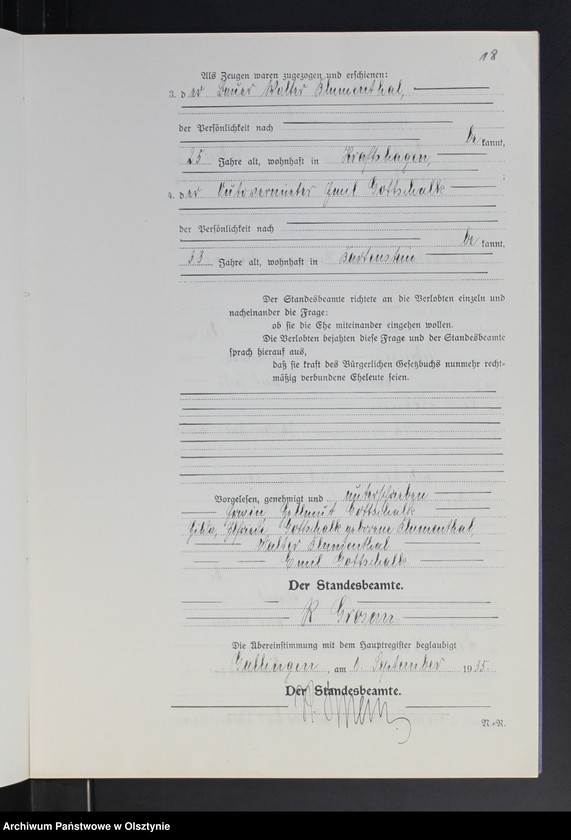 18
Als Zeugen waren zugezogen und erschienen:
3. der Bauer Walter Blumenthal,
der Persönlichkeit nach
bekannt,
25 Jahre alt, wohnhaft in Kraftshagen,
4. der Autovermieter Emil Gottschalk
der Persönlichkeit nach
bekannt,
33 Jahre alt, wohnhaft in Bartenstein
Der Standesbeamte richtete an die Verlobten einzeln und
nacheinander die Frage:
ob sie die Ehe miteinander eingehen wollen.
Die Verlobten bejahten diese Frage und der Standesbeamte
sprach hierauf aus,
daß sie kraft des Bürgerlichen Gesetzbuchs nunmehr recht-
mäßig verbundene Eheleute seien.
Vorgelesen, genehmigt und unterschrieben
Erwin Hellmut Gottschalk
Gottschalk geborene Blumenthal,
Walter Blumenthal
Emil Gottschalk
Der Standesbeamte.
R
Die Übereinstimmung mit dem Hauptregister beglaubigt
Gallingen, am September 1935.
Der Standesbeamte.
N.-R.
Archiwum Państwowe w Olsztynie